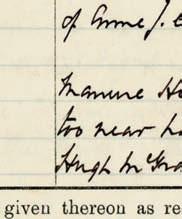 of Anne J.
Manure
too near
Hugh McGra
given thereon as re